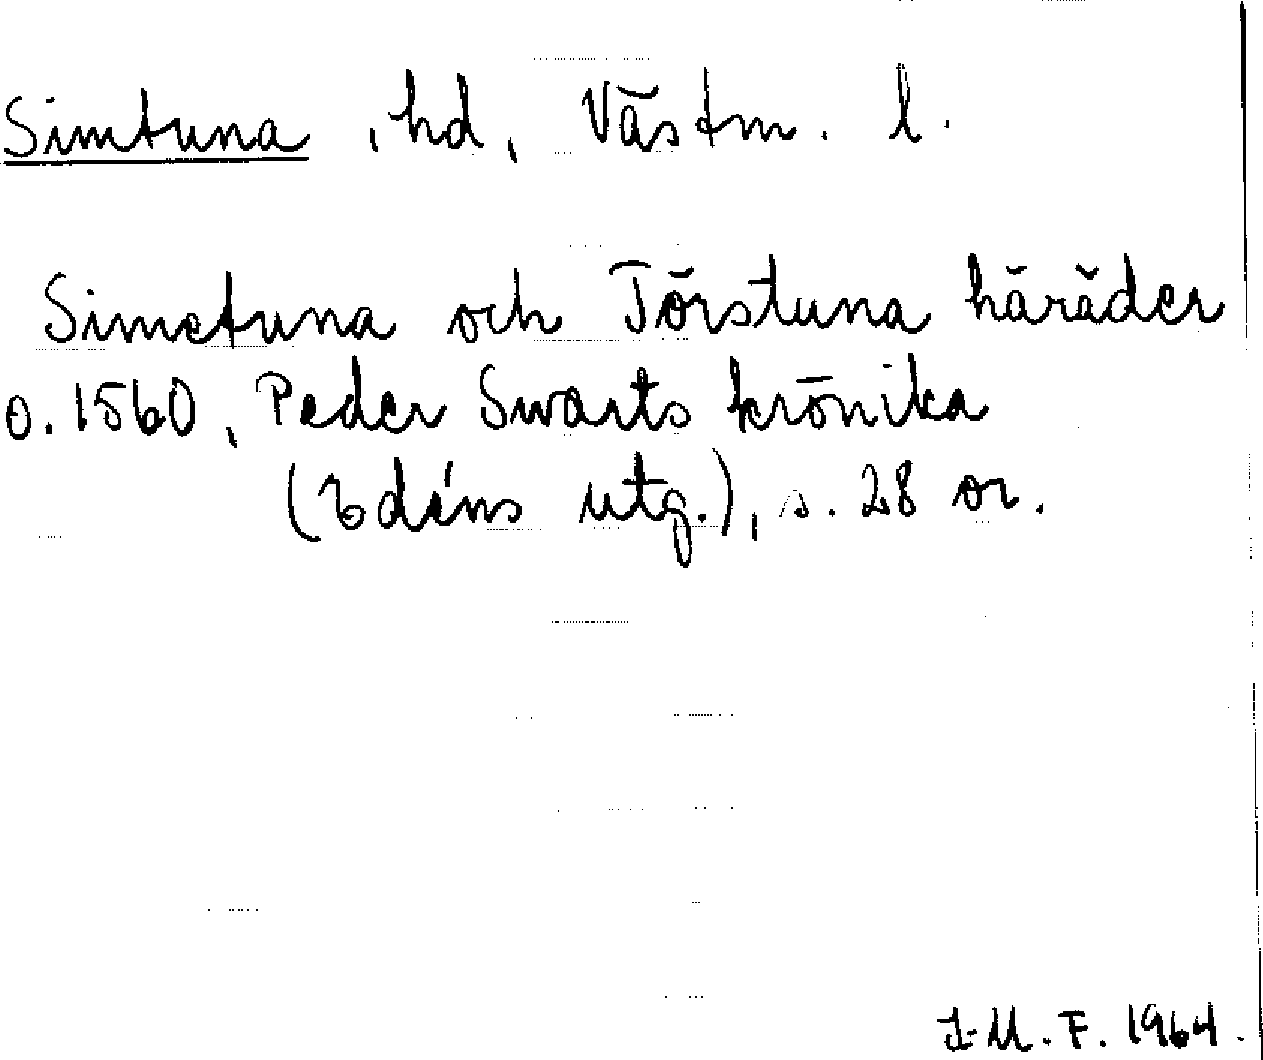 Simtuna, hd, Västm. l.
Simetuna och Törstuna häräder
o. 1560, Peder Swarts krönika
(Edéns utg.), s. 28 or.
I-M.F. 1964.